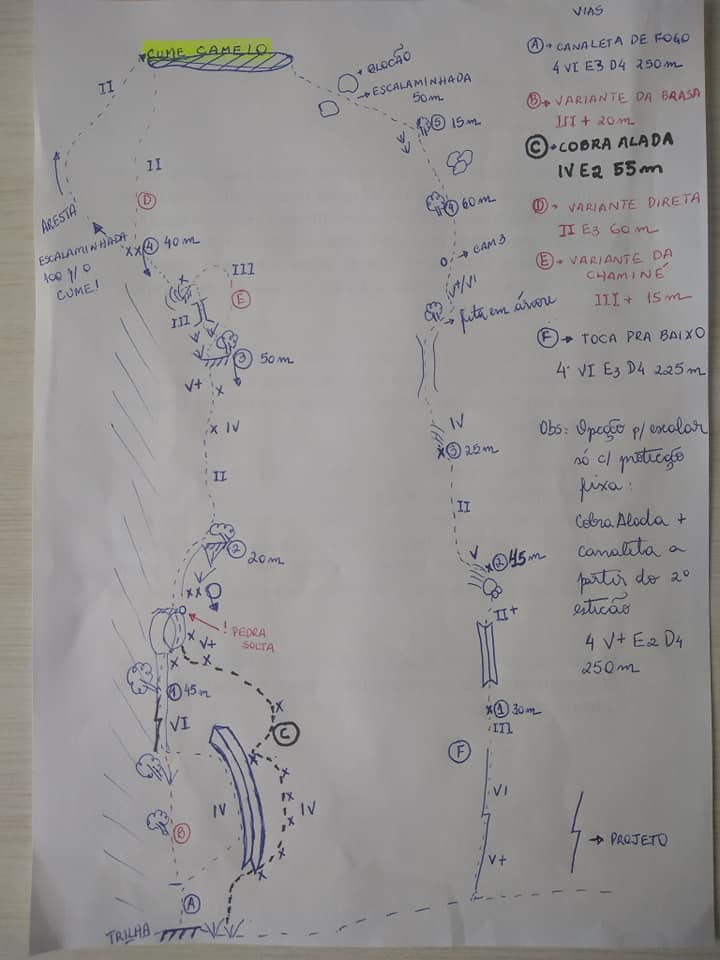 VIAS
A → CANALETA DE FOGO
4 VI E3 D4 250m
B → VARIANTE DA BRASA
III + 20m
C → COBRA ALADA
IV E2 55m
D → VARIANTE DIRETA
II E3 60m
E → VARIANTE DA
CHAMINÉ
III + 15m
F → TOCA PRA BAIXO
4º VI E3 D4 225m
Obs: Opção p/ escalar
só c/ proteção
fixa:
Cobra Alada +
canaleta a
partir do 2º
esticão
4 V+ E2 D4
250m
→ PROJETO
CUME CAMELO
II
II
D
ARESTA
ESCALAMINHADA
P/ O
CUME!
4 40m
III
E
III
3 50m
V+
IV
II
2 20m
! PEDRA
SOLTA
V+
1 45m
VI
C
IV
IV
B
A
TRILHA
BLOCÃO
ESCALAMINHADA
50m
5 15m
4 60m
CAM 3
V+/VI
fita em árvore
IV
3 25m
II
V
2 45m
II+
1 30m
III
F
VI
V+